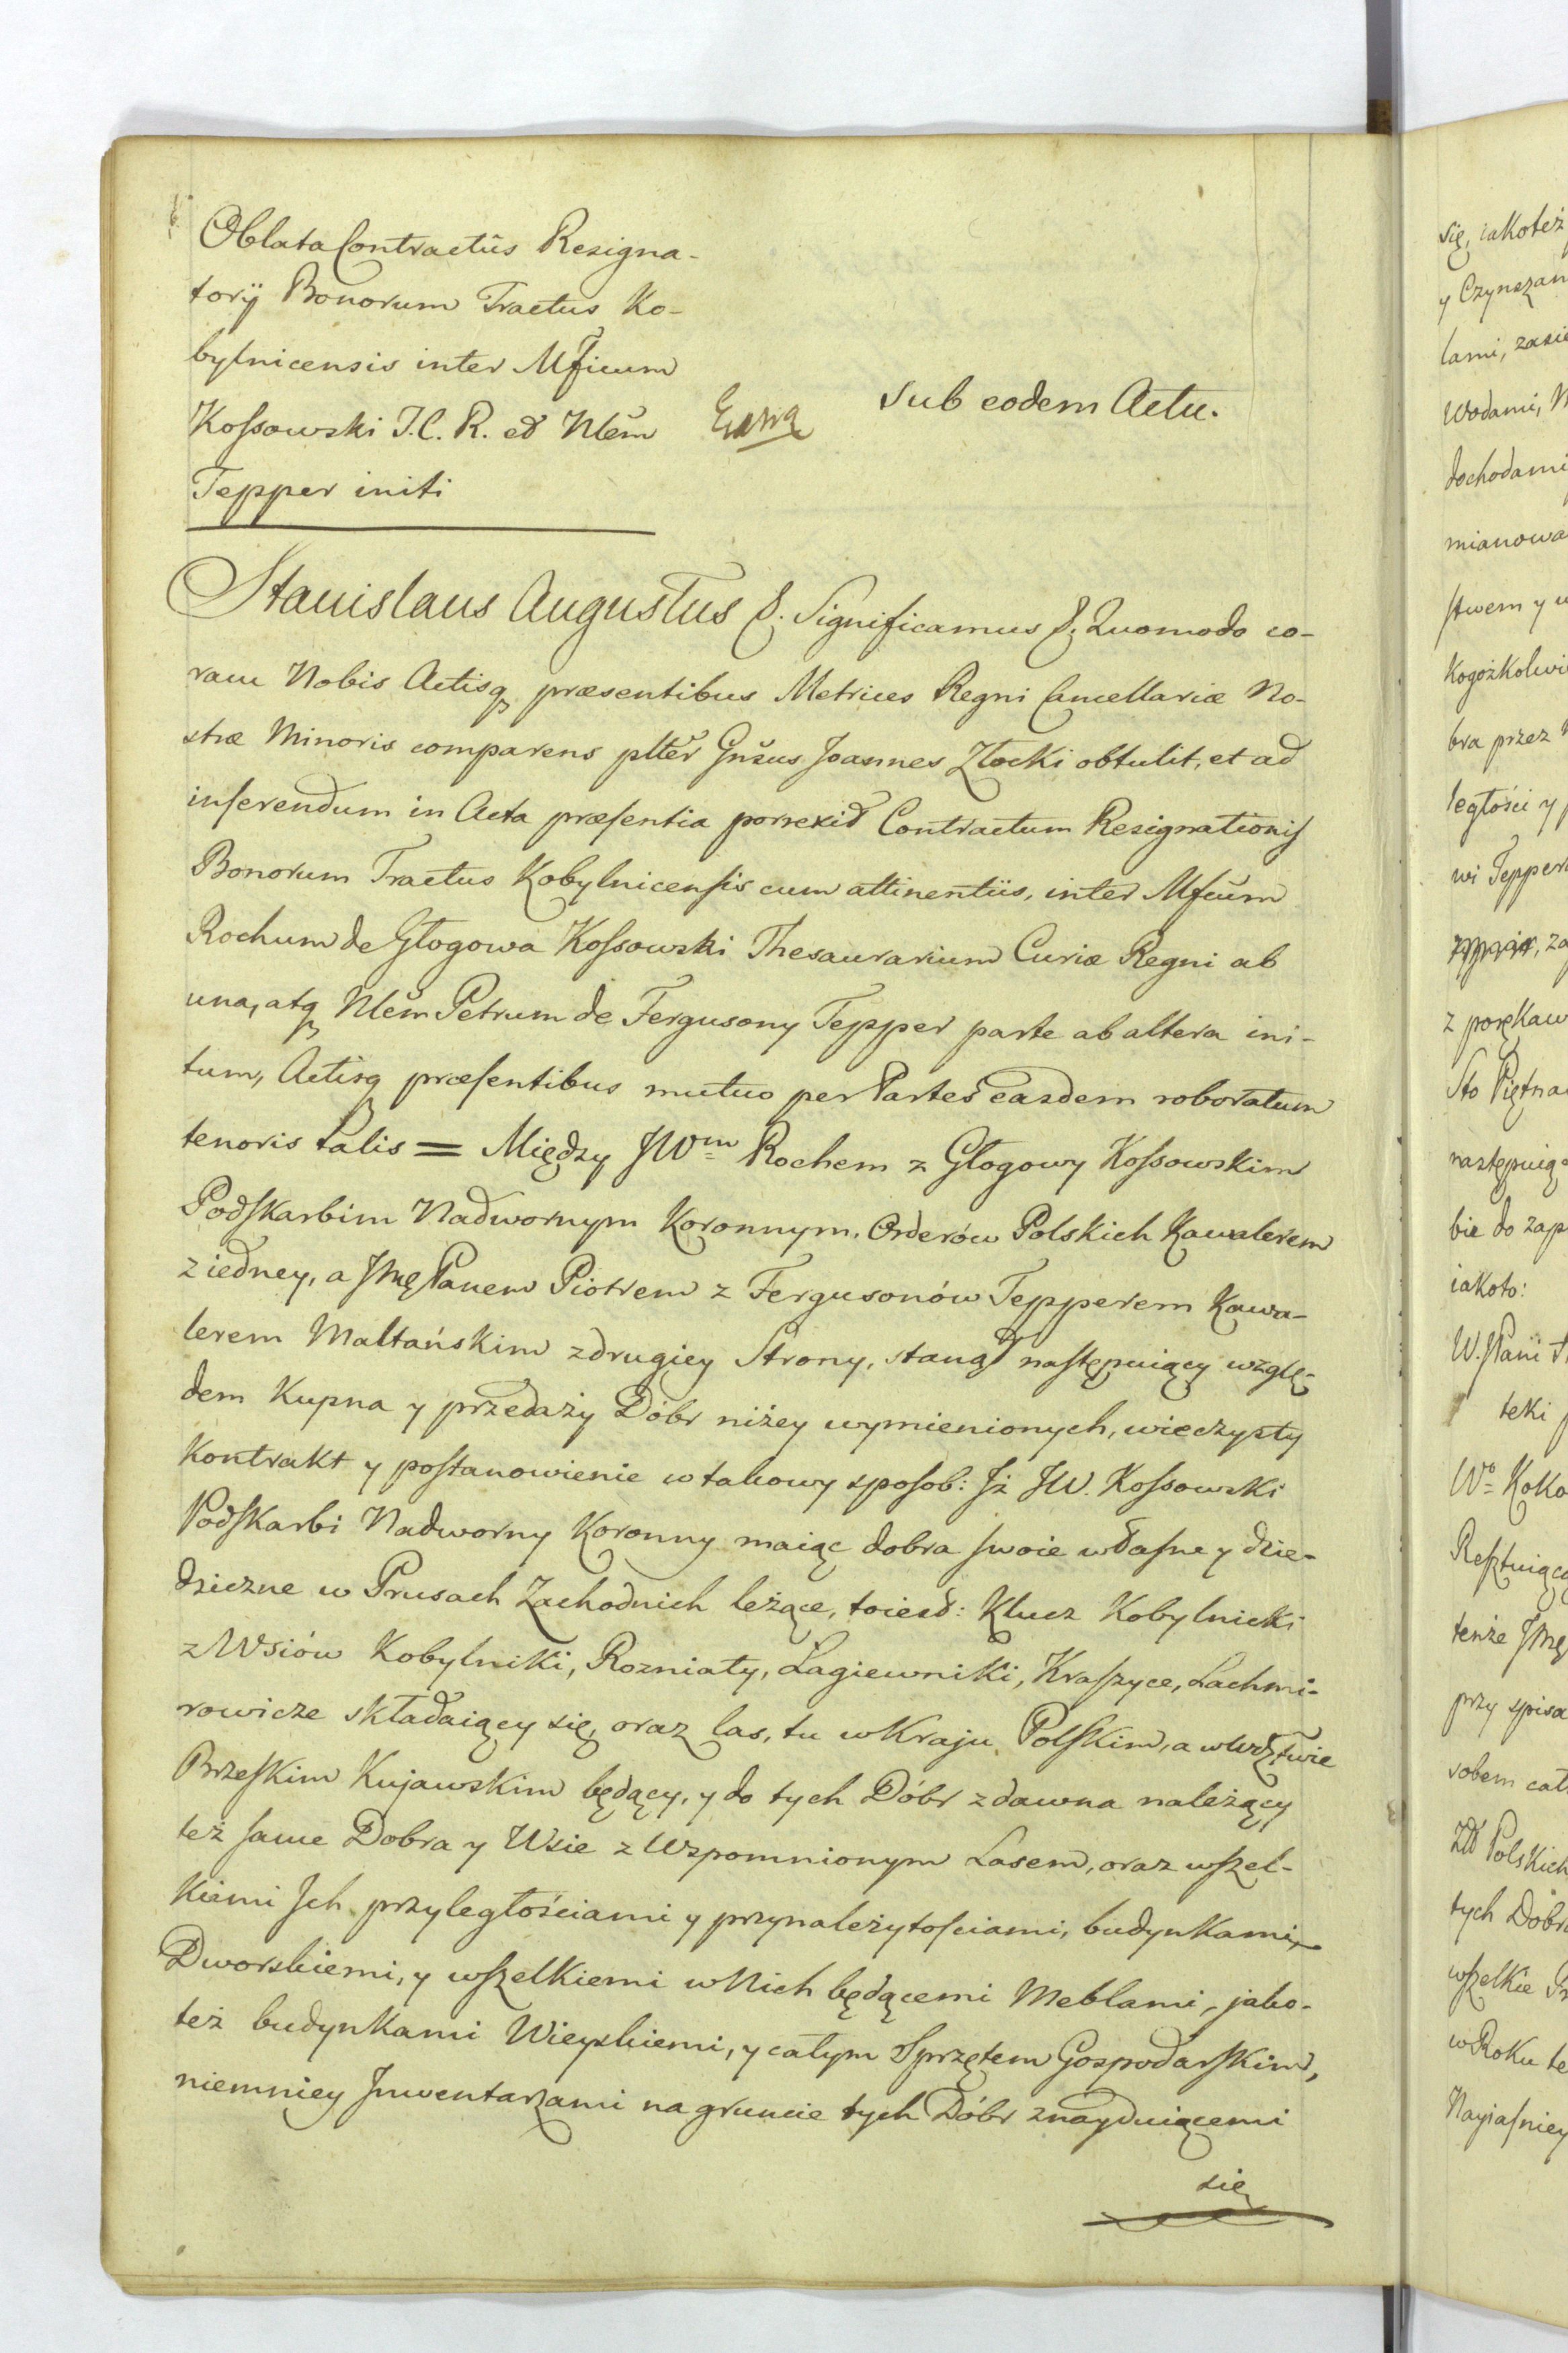 Oblata Contractûs Resigna-
torÿ Bonorum Tractus Ko-
bylnicensis inter Mficum
Koſsowski T.C.R. et Nlem̃
Tepper initi
sub eodem Actu.
Stanislaus Augustus &. Significamus &. Quomodo co-
ram Nobis Actisq præsentibus Metrices Regni Cancellariæ No-
stræ Minoris comparens plter Gnsus Joannes Złocki obtulit, et ad
inſerendum in Acta præſentia porrexit Contractum Resignationiſ
Bonorum Tractus Kobylnicenſis cum attinentiis, inter Mfcum
Rochum de Głogowa Koſsowski Thesaurarium Curiæ Regni ab
una, atq Nlem̃ Petrum de Fergusony Tepper parte ab altera ini-
tum, Actisq præſentibus mutuo per Partes easdem roboratum
tenoris talis = Między JWm Rochem z Głogowy Koſsowskim
Podſkarbim Nadwornym Koronnym, Orderów Polskich Kawalerem
z iedney, a JMę Panem Piotrem z Fergusonów Tepperem Kawa-
lerem Maltańskim z drugiey Strony, stanął naſtępuiący wzglę-
dem Kupna y przedaży Dóbr niżey wymienionych, wieczysty
Kontrakt y poſtanowienie w takowy sposob: Jż JW. Koſsowski
Podſkarbi Nadworny Koronny maiąc dobra ſwoie właſne y dzie-
dziczne w Prusach Zachodnich leżące, toiest: Klucz Kobylnicki
z Wsiów Kobylniki, Rozniaty, Łagiewniki, Kraſzyce, Lachmi-
rowicze składaiący się, oraz las, tu w Kraju Polſkim, a w Wdztwie
Brzeſkim Kujawskim będący, y do tych Dóbr zdawna należący
też ſame Dobra y Wsie z Wspomnionym Lasem, oraz wſzel-
kiemi Jch przyległościami y przynależytoſciami, budynkami
Dworskiemi, y wſzelkiemi w Nich będącemi Meblami, jako-
też budynkami Wieyskiemi, y całym Sprzętem Gospodarſkim,
niemniey Jnwentarzami na gruncie tych Dóbr znayduiącemi
się
się, iakoteż
y Czynszan
lami, zasie
Wodami,
dochodami
mianowa
ſtwem y
kogożkolwi
bra przez
ległości y
wi Tepper
z poręKaw
Sto Piętna
następuią
bie do zap
iakoto:
W. JPani
teki
Wo Koko
Reſztuiąc
tenże JMę
przy spisa
sobem cał
Zł Polskich
tych Dobr
wſzelkie
w Roku te
Nayiaſniey